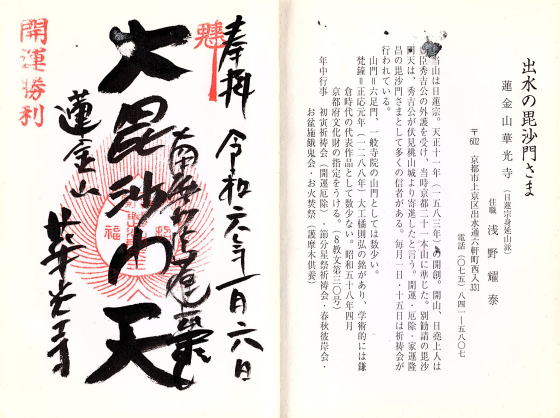 出水の毘沙門さま
蓮金山華光寺（日蓮宗身延山派）
住職 浅野耀泰
〒602 京都市上京区出水通六軒町西入331
電話（〇七五）八四一ー五八〇七
当山は日蓮宗。天正十一年（一五八三年）の開創。開山、日堯上人は
臣秀吉公の外護を受け、当時京都二十一本山に準じた。別勧請の毘沙
門天は、秀吉公が伏見桃山城より寄進したと言う。開運・厄除・家運隆
昌の毘沙門さまとして多くの信者がある。毎月一日・十五日は祈祷会が
行われている。
山門＝六足門、一般寺院の山門としては数少い。
梵鐘＝正応元年（一二八八年）大工橘則弘の銘があり、学術的には鎌
倉時代の代表作品として数少ない。昭和五十八年四月
京都府文化財の指定をうける。（８教文第三〇号）
年中行事 初寅祈祷会（開運厄除）・節分星祭祈祷会・春秋彼岸会・
お盆施餓鬼会・お火焚祭（護摩木供養）
奉拝
令和 年一月六日
大毘沙門天
福
蓮金山
華光寺
開運勝利